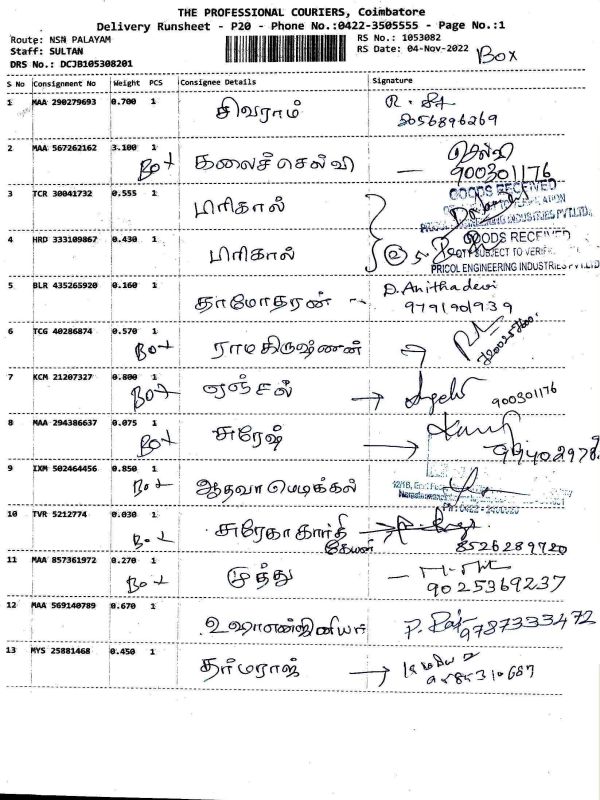 THE PROFESSIONAL COURIERS, Coimbatore
Delivery Runsheet - P20 - Phone No.:0422-3505555 - Page No.:1
Route: NSN PALAYAM
Staff: SULTAN
DRS No.: DCJB105308201
RS No.: 1053082
RS Date: 04-Nov-2022
Box
S No Consignment No Weight PCS Consignee Details Signature
1 MAA 290279693 0.700 1 சிவராம்
8056896269
2 MAA 567262162 3.100 1 Box கலைச்செல்வி — செல்வி
900301176
3 TCR 30041732 0.555 1 பரிகால்
GOODS RECEIVED
PRICOL ENGINEERING INDUSTRIES PVT.LTD.
4 HRD 333109867 0.430 1 பரிகால்
GOODS RECEIVED
SUBJECT TO
PRICOL ENGINEERING INDUSTRIES PVT.LTD
5 BLR 435265920 0.160 1 தாமோதரன் D. Anithadevi
9791901939
6 TCG 40286874 0.570 1 Box ராமகிருஷ்ணன்
7 KCM 21207327 0.800 1 Box ஏஞ்சல்
900301176
8 MAA 294386637 0.075 1 Box சுரேஷ்
9 IXM 502464456 0.850 1 Box ஆதவா மெடிக்கல்
10 TVR 5212774 0.030 1 Box சுரேகா கார்தி
கேயன் 8526289720
11 MAA 857361972 0.270 1 Box முத்து
9025369237
12 MAA 569140789 0.670 1 உஷா என்ஜினியர்
9787333472
13 MYS 25881468 0.450 1 தர்மராஜ்